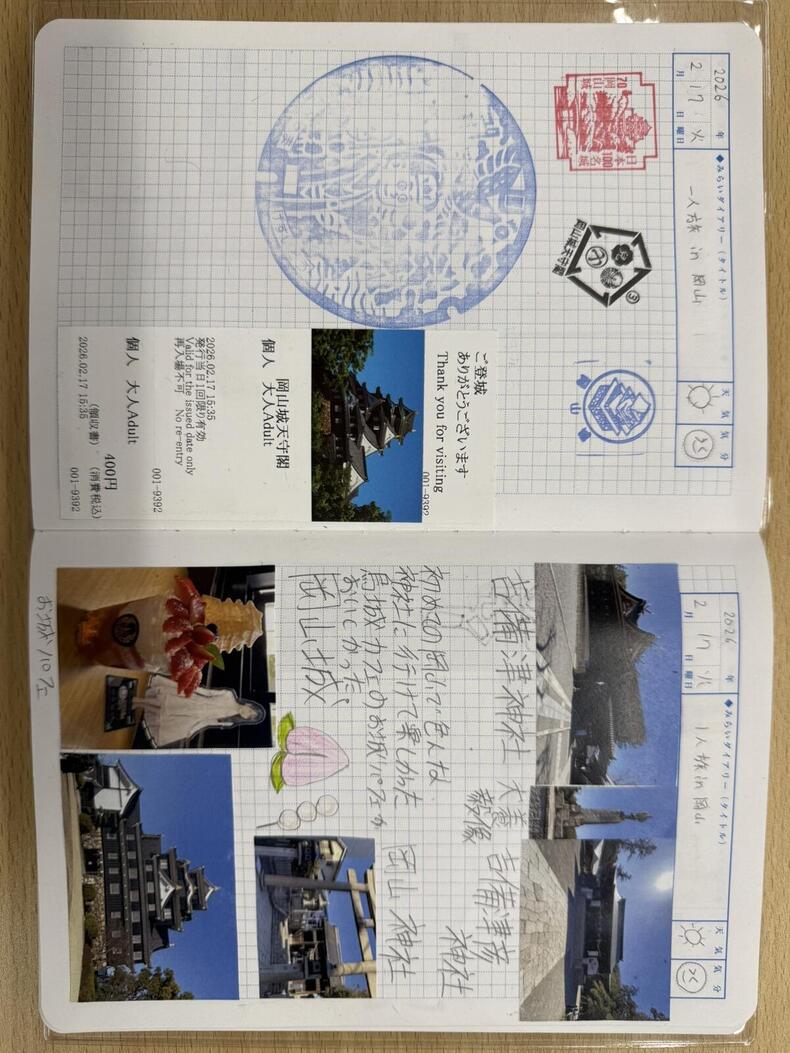 2026年
2月17日火曜日
◆みらいダイアリー（タイトル）
天気
気分
一人旅 in 岡山
70
岡山城
日本100名城
岡山城天守閣
ご登城
ありがとうございます
Thank you for visiting
001-9392
岡山城天守閣
個人 大人Adult
2026.02.17 15:35
発行当日1回限り有効
Valid for the issued date only
再入場不可 No re-entry
001-9392
個人 大人Adult
400円
(領収書) (消費税込)
2026.02.17 15:35 001-9392
2026年
2月17日火曜日
◆みらいダイアリー（タイトル）
天気
気分
1人旅in岡山
吉備津神社
犬養
毅像
吉備津彦
神社
初めての岡山で色んな
神社に行けて楽しめた
烏城カフェのお城パフェが
おいしかった。
岡山城
岡山神社
お城パフェ